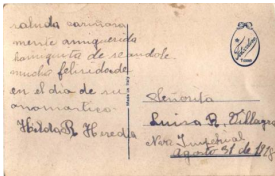 saluda cariñosa
mente amiquerida
hamiguita deseandole
muchas felicidades
en el dia de su
onomastico
Hilda R Heredia
Made in Italy
Señorita
Luisa R. Villagra
Nva Imperial
Agosto 31 de 19